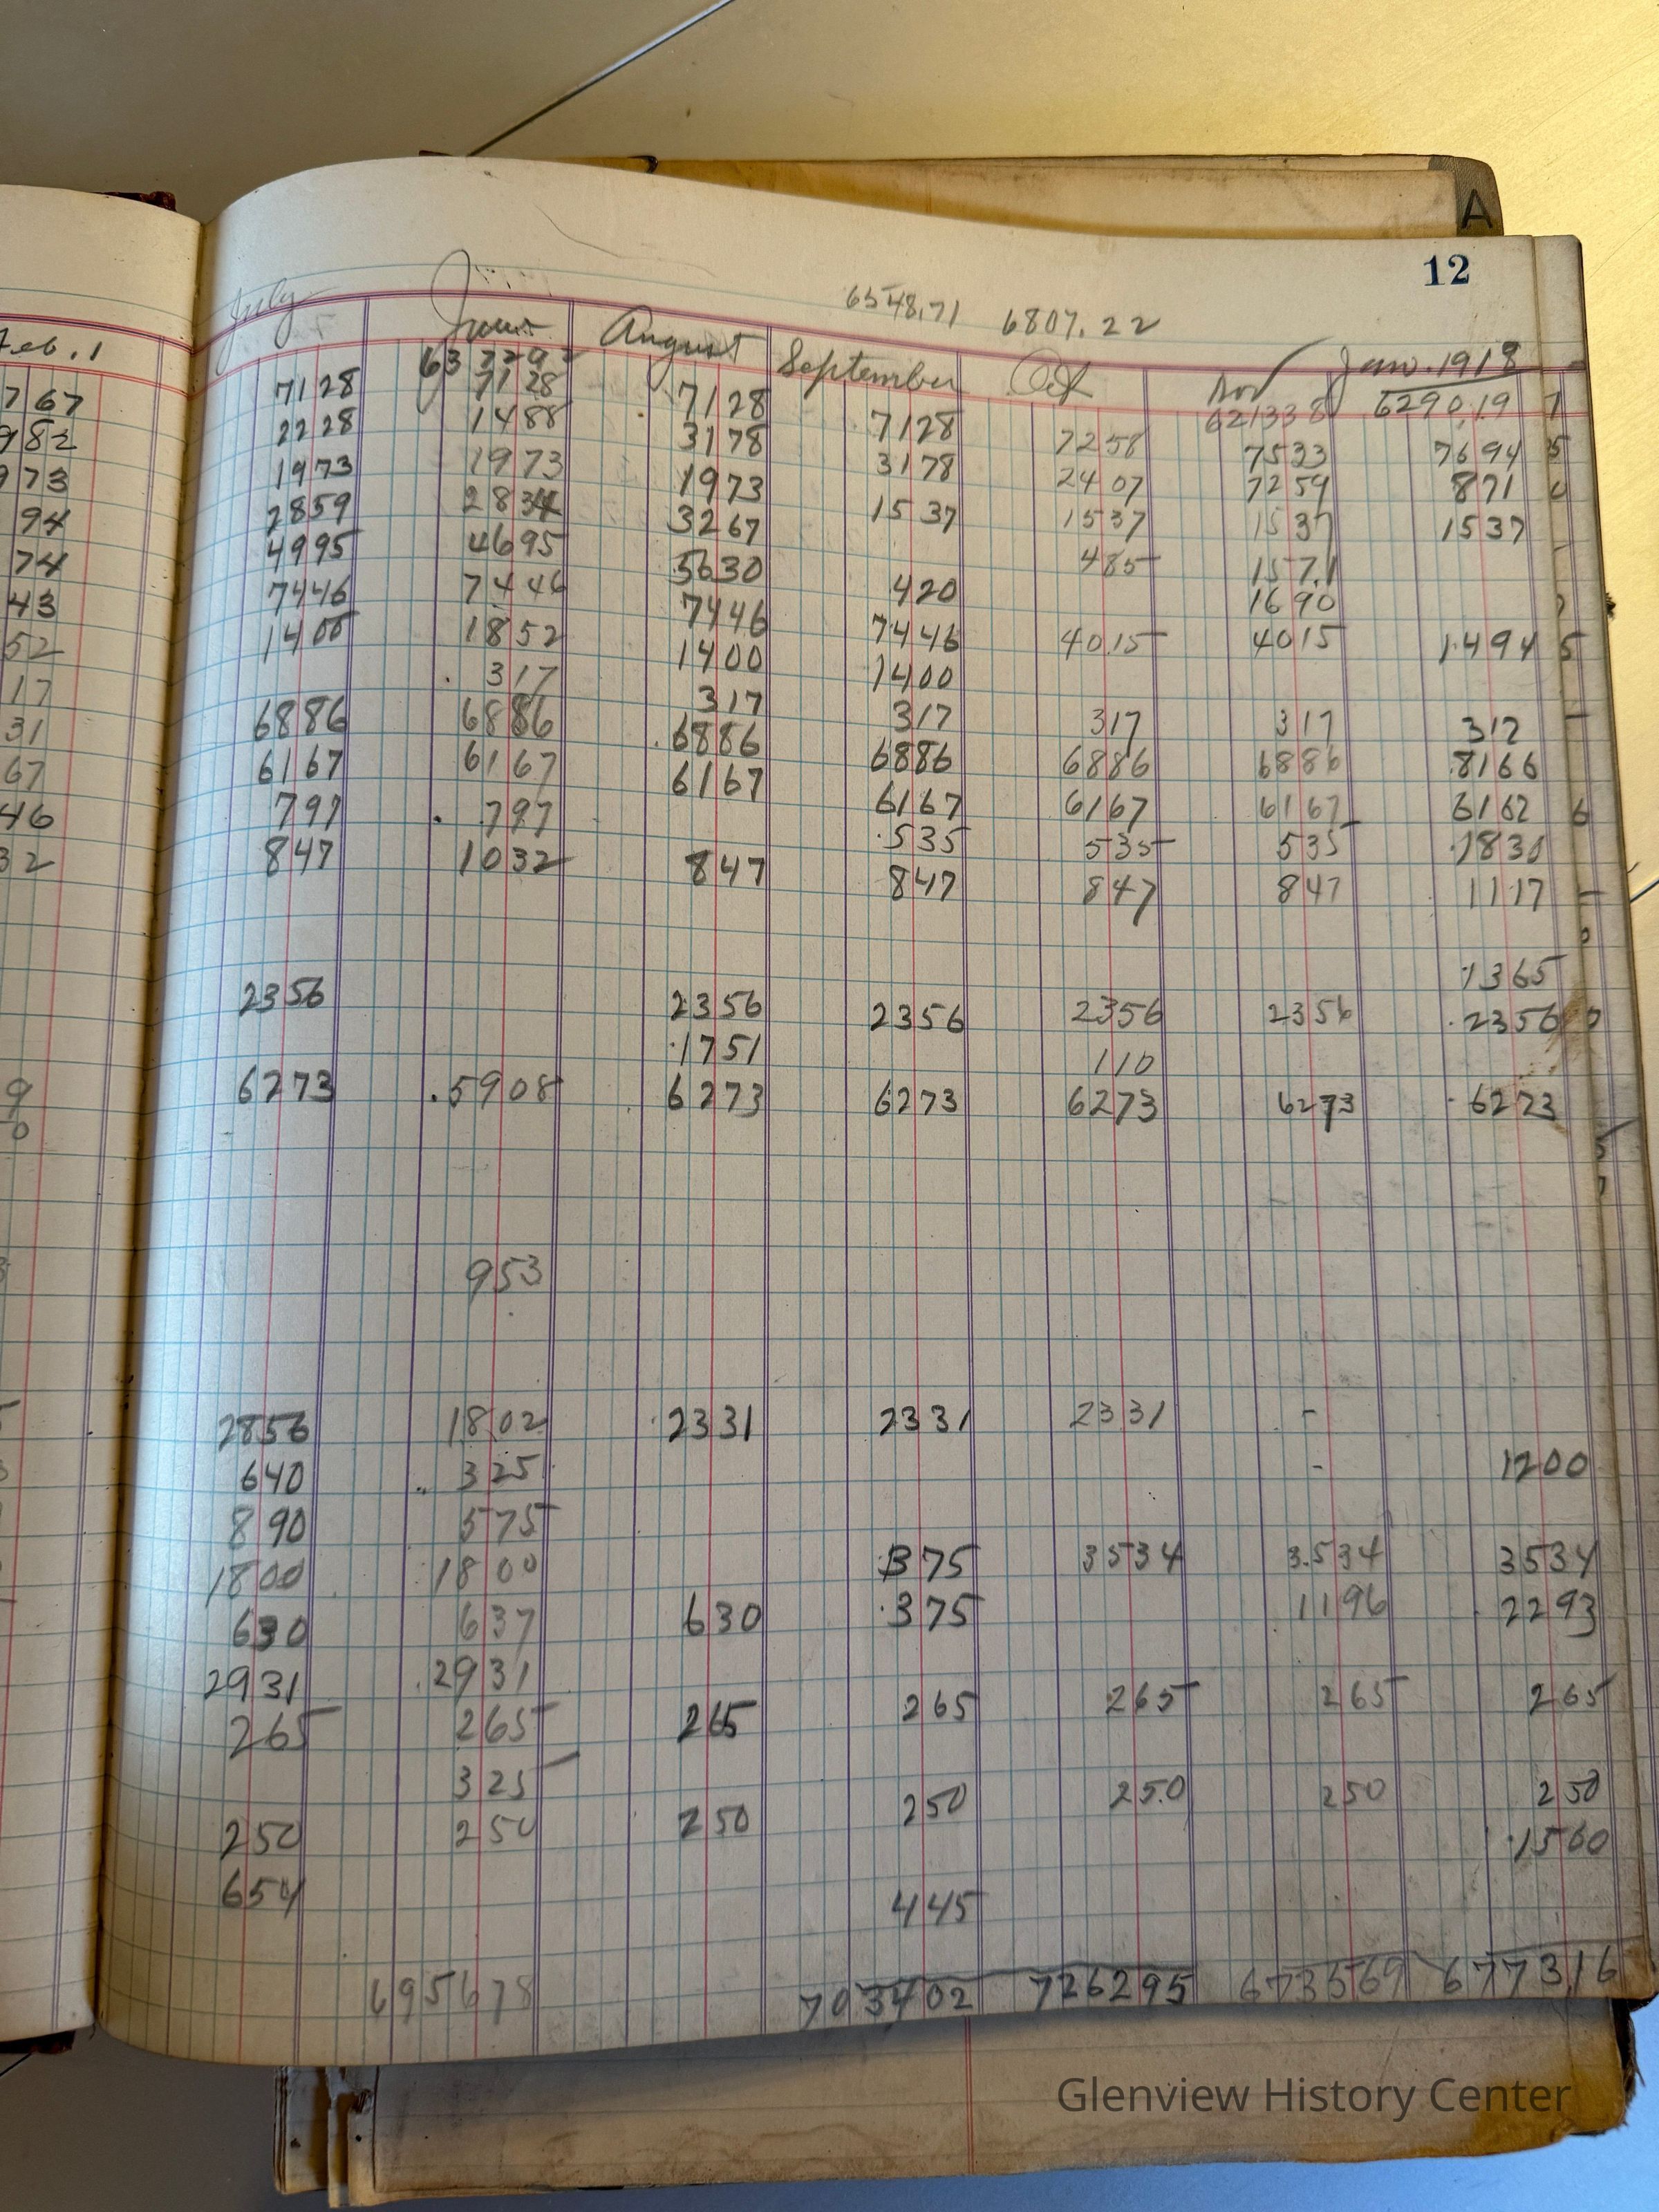 A
12
6548.71 6807.22
July June August September Oct Nov Jan. 1918
Feb. 1
621338 6290.19
767 7128 7128 7128 7128 7258 7533 7694
982 2228 1488 3178 3178 2407 7259 871
973 1973 1973 1973 1537 1537 1537 1537
94 2859 2834 3267 485 1571
74 4995 4695 5630 420 1690
43 7446 7446 7446 7446 4015 4015 1494
52 1400 1852 1400 1400
17 317 317 317 317 317 312
31 6886 6886 6886 6886 6886 6886 8166
67 6167 6167 6167 6167 6167 6167 6162
46 797 797 535 535 535 1830
32 847 1032 847 847 847 847 1117
1365
2356 2356 2356 2356 2356 2356
1751 110
6273 5908 6273 6273 6273 6273 6273
953
2856 1802 2331 2331 2331 -
640 325 - 1200
890 575
1800 1800 375 3534 3534 3534
630 637 630 375 1196 2293
2931 2931
265 265 265 265 265 265 265
325
250 250 250 250 250 250 250
1560
654 445
695678 703402 726295 673569 677316
Glenview History Center